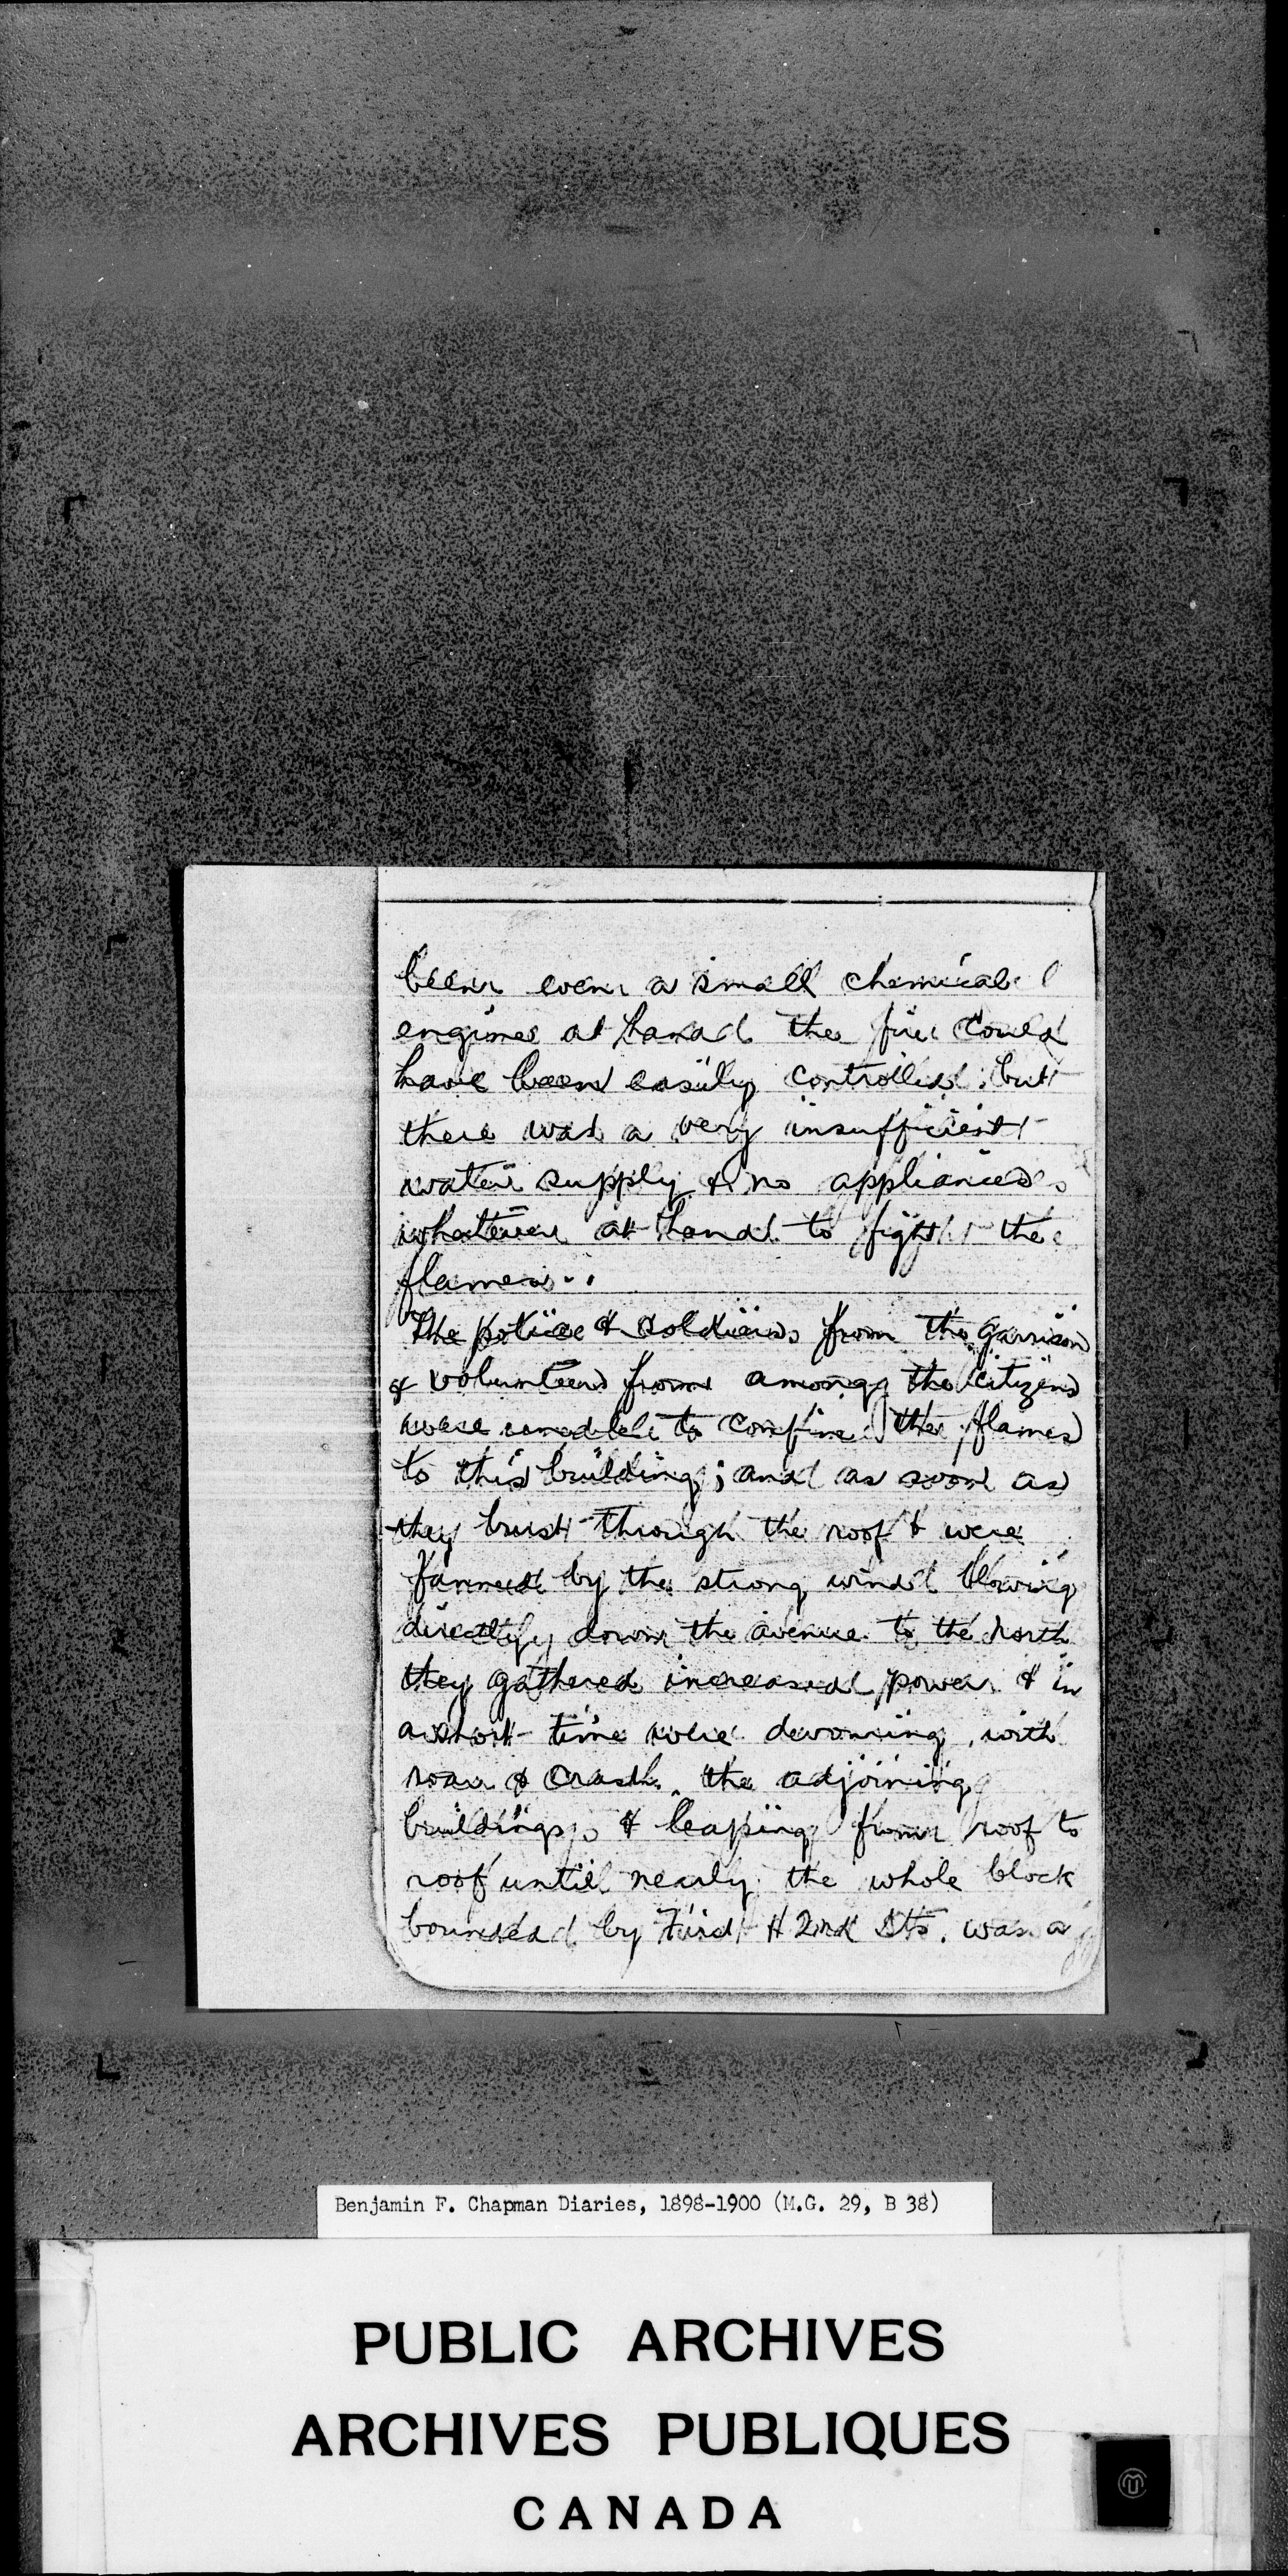 been even a small chemical
engine at hand the fire could
have been easily controlled, but
there was a very insufficient
water supply & no appliances
whatever at hand to fight the
flames..
The police & soldiers from the garrison
& volunteers from among the citizens
were unable to confine the flames
to this building; and as soon as
they burst through the roof & were
fanned by the strong wind blowing
directly down the avenue to the north
they gathered increased power & in
a short time were devouring, with
roar & crash, the adjoining
buildings, & leaping from roof to
roof until nearly the whole block
bounded by First & 2nd Sts. was a
Benjamin F. Chapman Diaries, 1898-1900 (M.G. 29, B 38)
PUBLIC ARCHIVES
ARCHIVES PUBLIQUES
CANADA